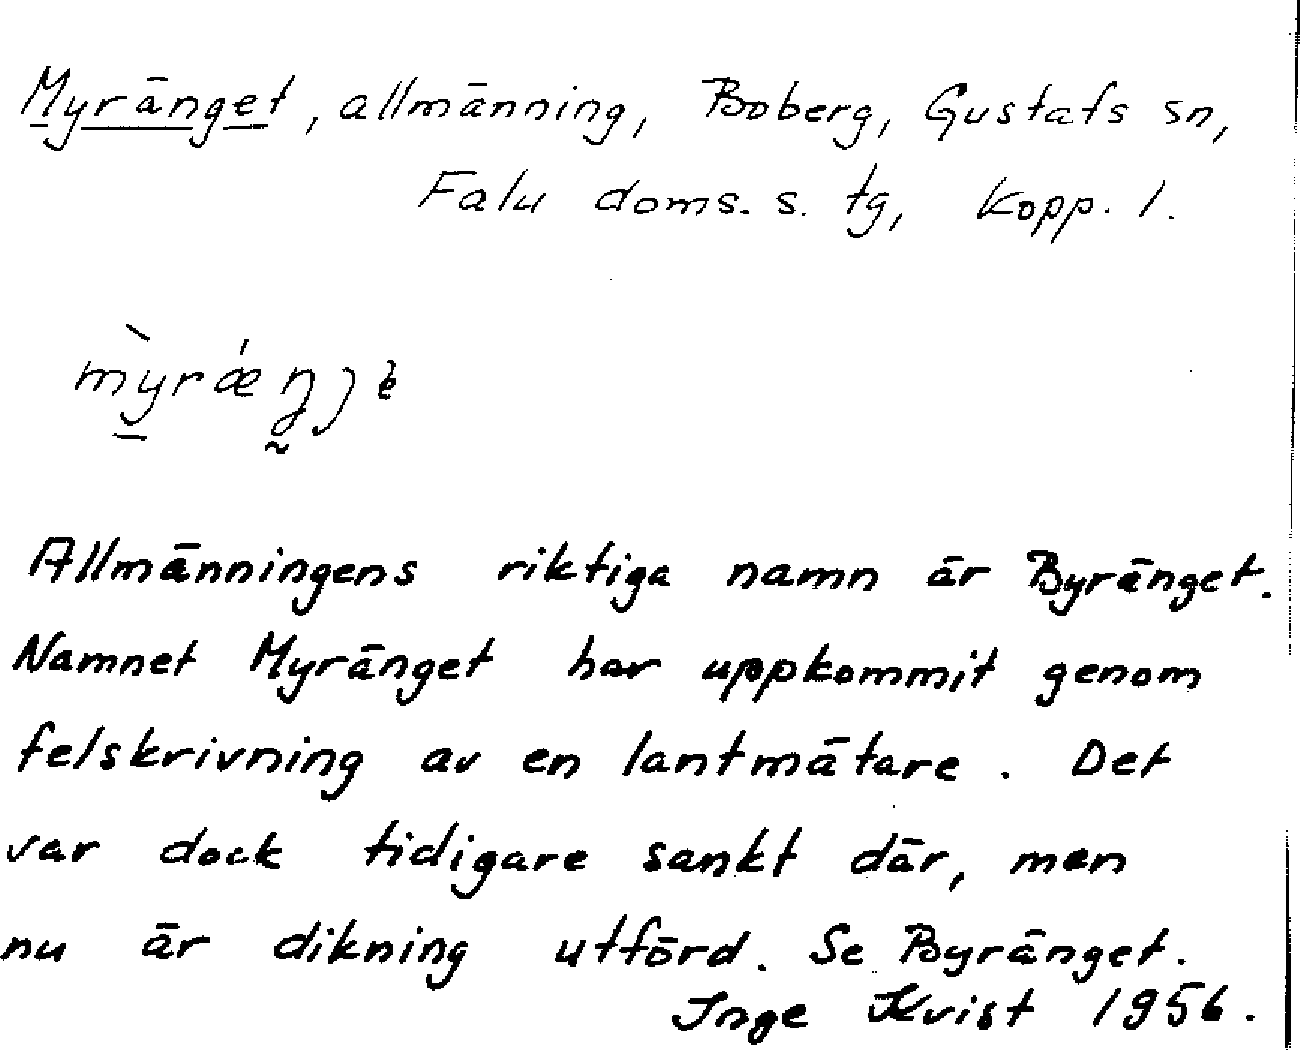 Myränget, allmänning, Boberg, Gustafs sn,
Falu doms. s. tg, Kopp. l.
Allmänningens riktiga namn är Byränget.
Namnet Myränget har uppkommit genom
felskrivning av en lantmätare. Det
var dock tidigare sankt där, men
nu är dikning utförd. Se Byränget.
Inge Kvist 1956.